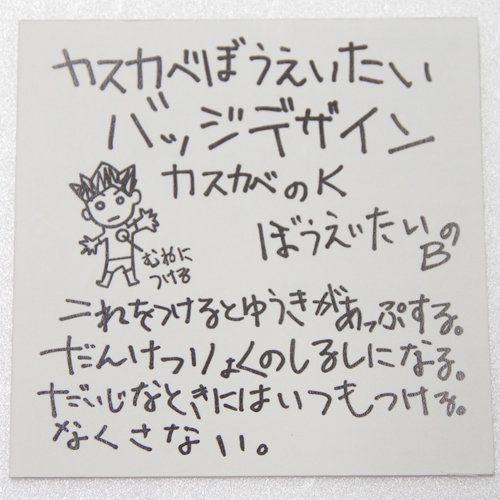 カスカベぼうえいたい
バッジデザイン
カスカベのK
ぼうえいたいのB
むねに
つける
これをつけるとゆうきがあっぷする。
だんけつりょくのしるしになる。
だいじなときにはいつもつける。
なくさない。